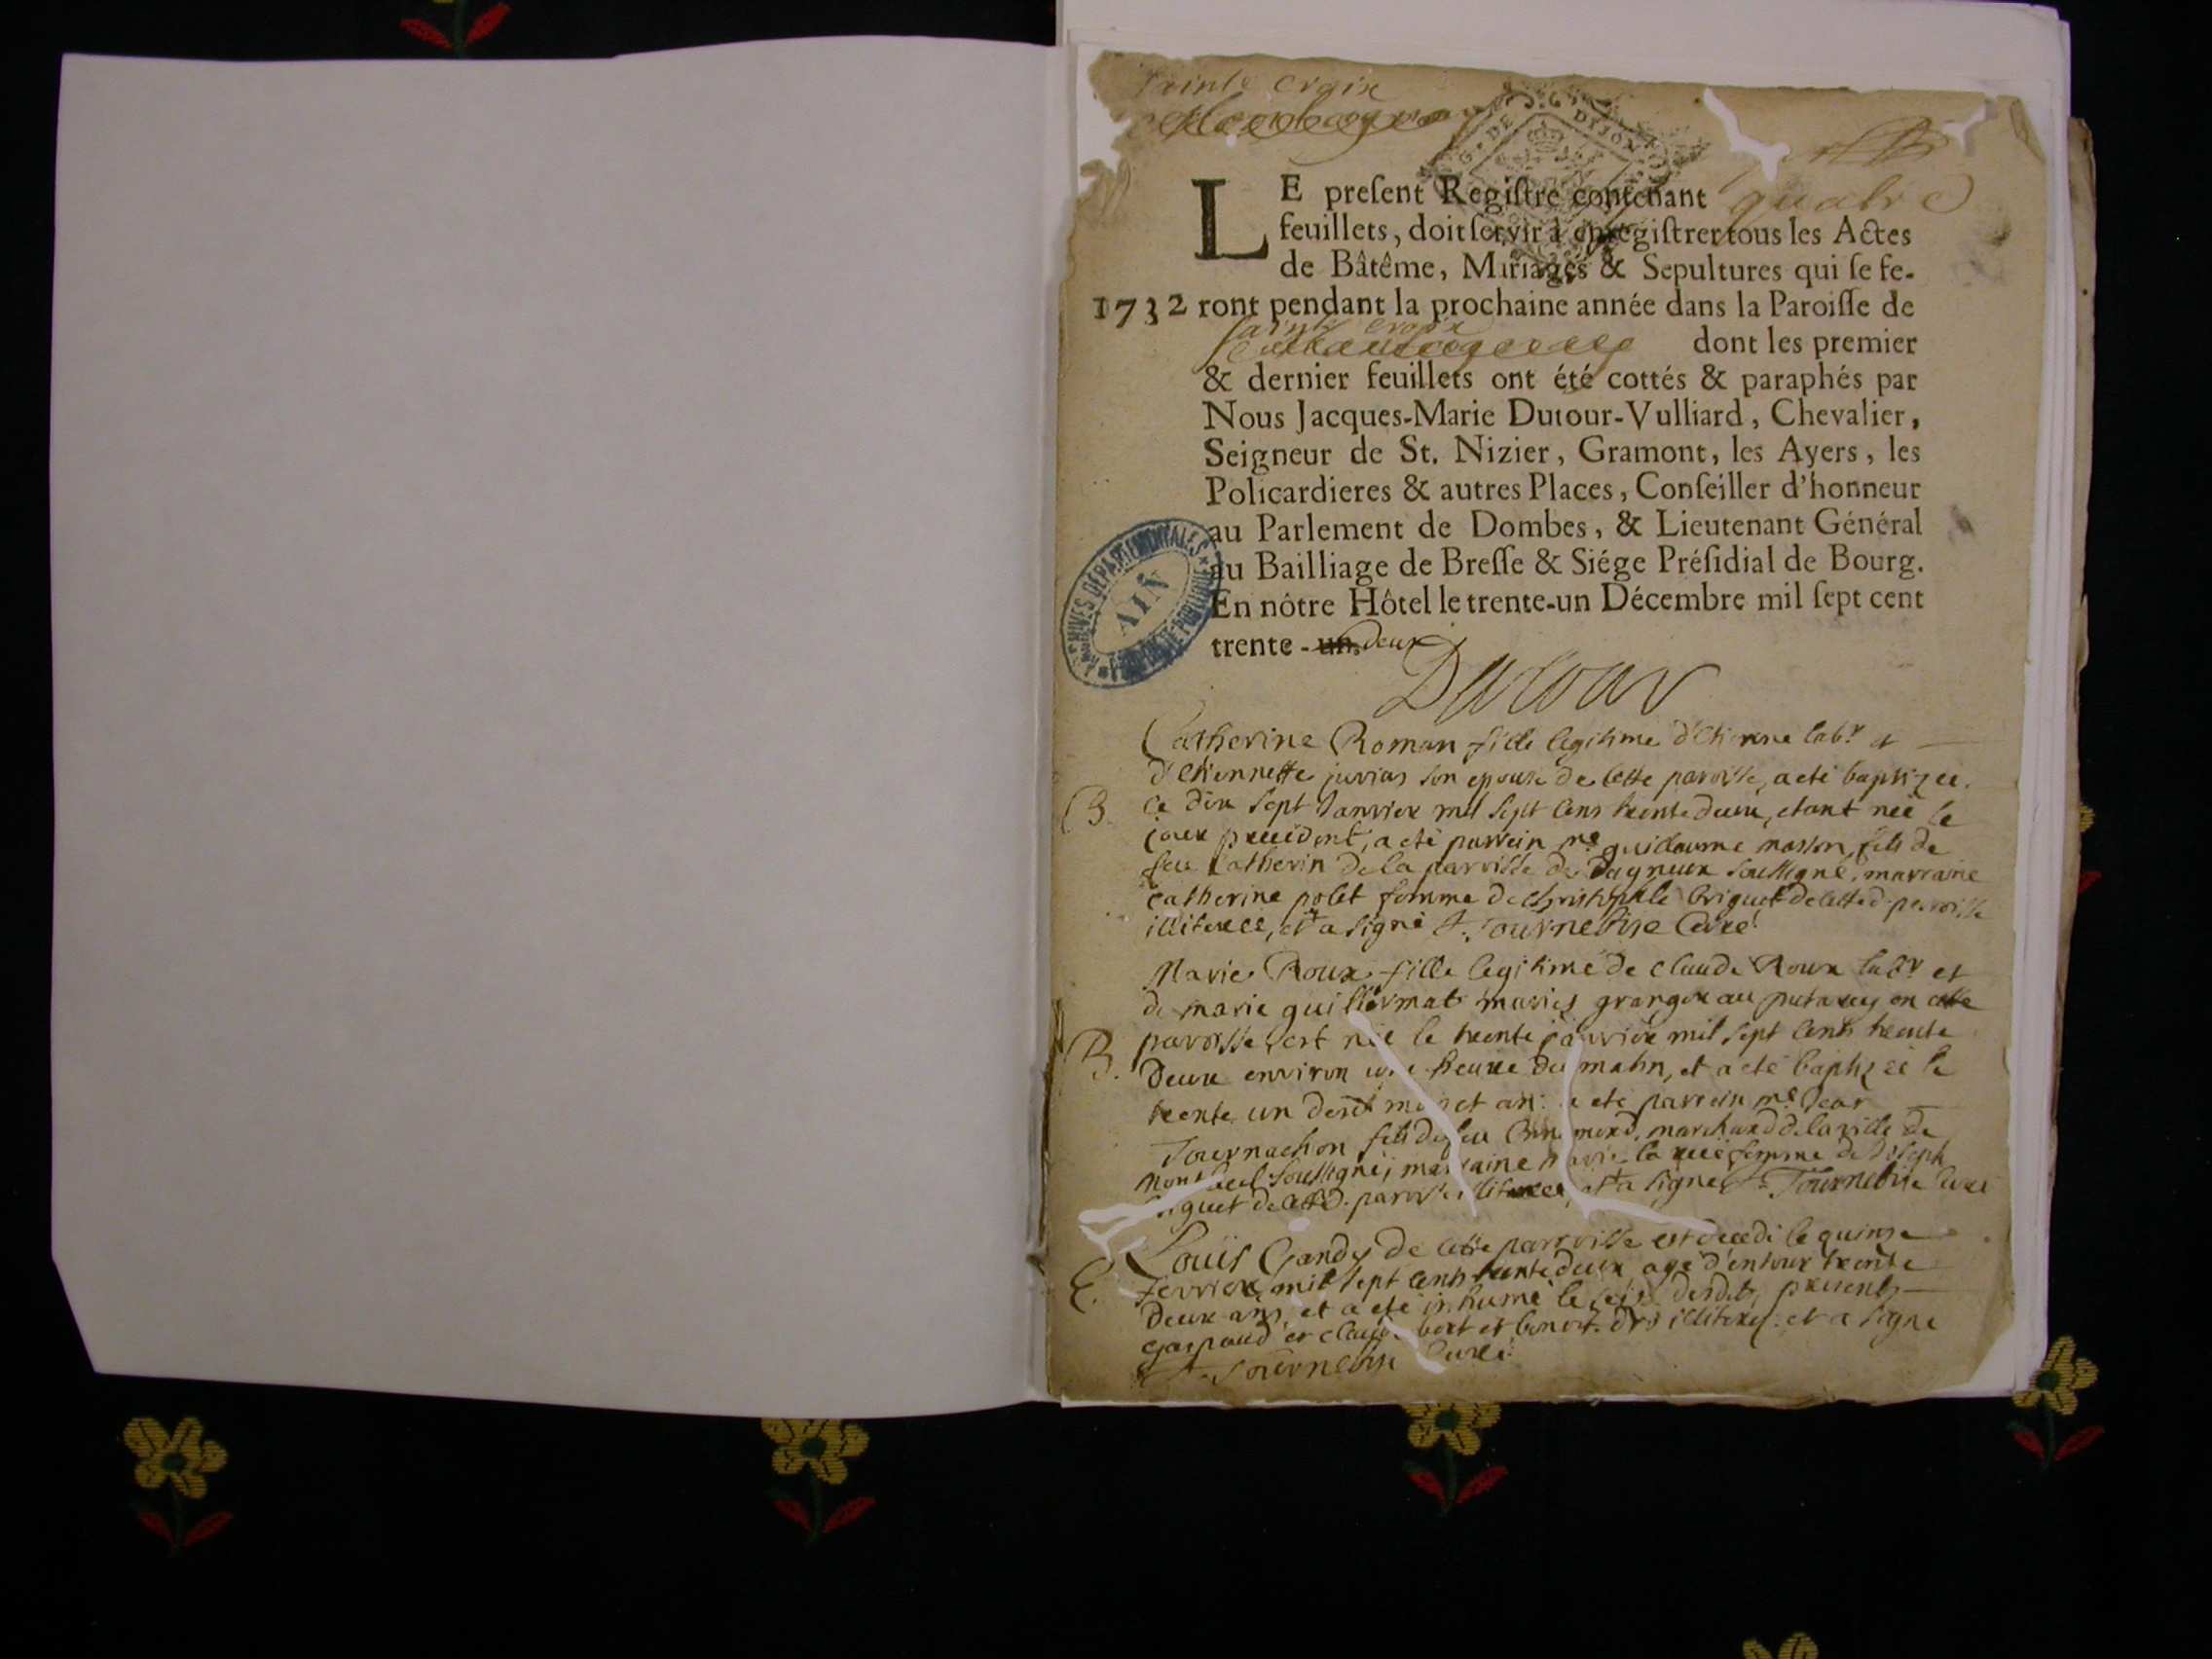 Sainte Croix
G. DE DIJON
LE preſent Regiſtre contenant quatre
feuillets, doit ſervir à enregiſtrer tous les Actes
de Bâtême, Mariages & Sepultures qui ſe fe-
1732 ront pendant la prochaine année dans la Paroiſſe de
sainte croix dont les premier
& dernier feuillets ont été cottés & paraphés par
Nous Jacques-Marie Dutour-Vulliard, Chevalier,
Seigneur de St. Nizier, Gramont, les Ayers, les
Policardieres & autres Places, Conſeiller d'honneur
au Parlement de Dombes, & Lieutenant Général
au Bailliage de Breſſe & Siége Préſidial de Bourg.
En nôtre Hôtel le trente-un Décembre mil ſept cent
trente-un. deux
ARCHIVES DEPARTEMENTALES AIN
Dutour
Catherine Roman fille legitime d'Etienne labr et
d'etiennette juvian son epouse de cette paroisse, a eté baptizee
B. ce dix sept Janvier mil sept cens trente deux, etant neé le
jour precedent, a eté parrein me guillaume masson fils de
feu Catherin de la parroisse de Dagneux soussigné, marraine
catherine polet femme de christophle briguet de cette d. parroisse
illiterees, et a signé Tournebise Curé
Marie Roux fille legitime de Claude Roux labr et
de marie guillermat mariés granger au en cette
B. paroisse, est née le trente janvier mil sept cents trente
Deux environ une heure du matin, et a eté baptizeé le
trente un desdt mois et an: a eté parrein me Jean
Tournachon fils de feu marchand de la ville de
montluel soussigné, marraine marie femme de Joseph
briguet de cette d. paroisse illiteree, et a signé Tournebise curé
E. Louïs Gandy de cette parroisse est decedé le quinze
Fevrier mil sept cents trente deux agé d'entour trente
Deux ans, et a eté inhumé le seize desdts, presents
gaspard et claude et benoit illiterés. et a signé
Tournebise Curé